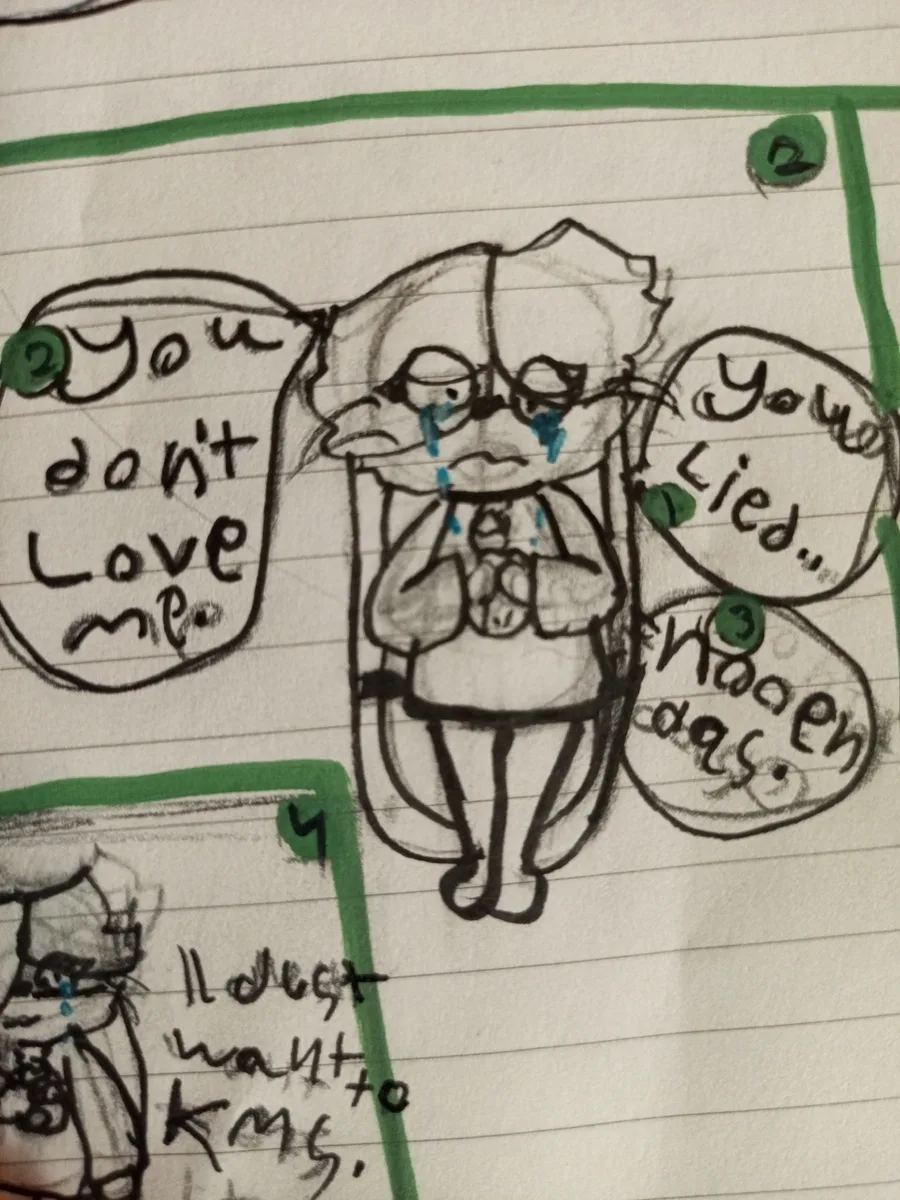 2
You
Lied...
1
2
You
don't
Love
me.
3
nooen
das.
4
I Just
want to
Kms.